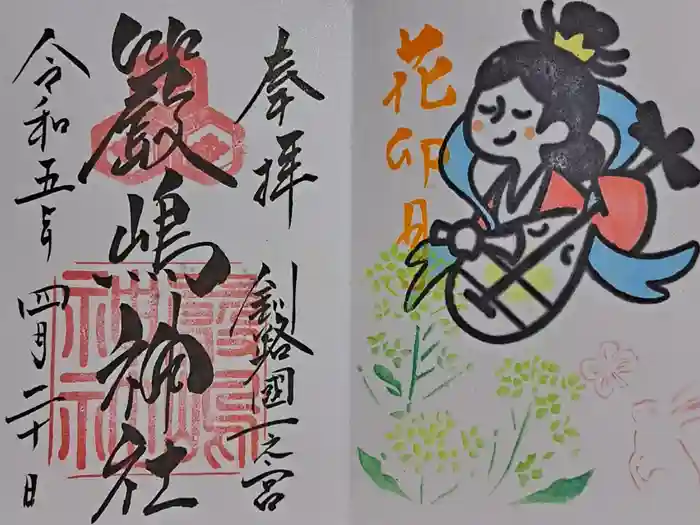 奉拝
釧路國一之宮
厳嶋神社
令和五年
四月二十日
花卯月